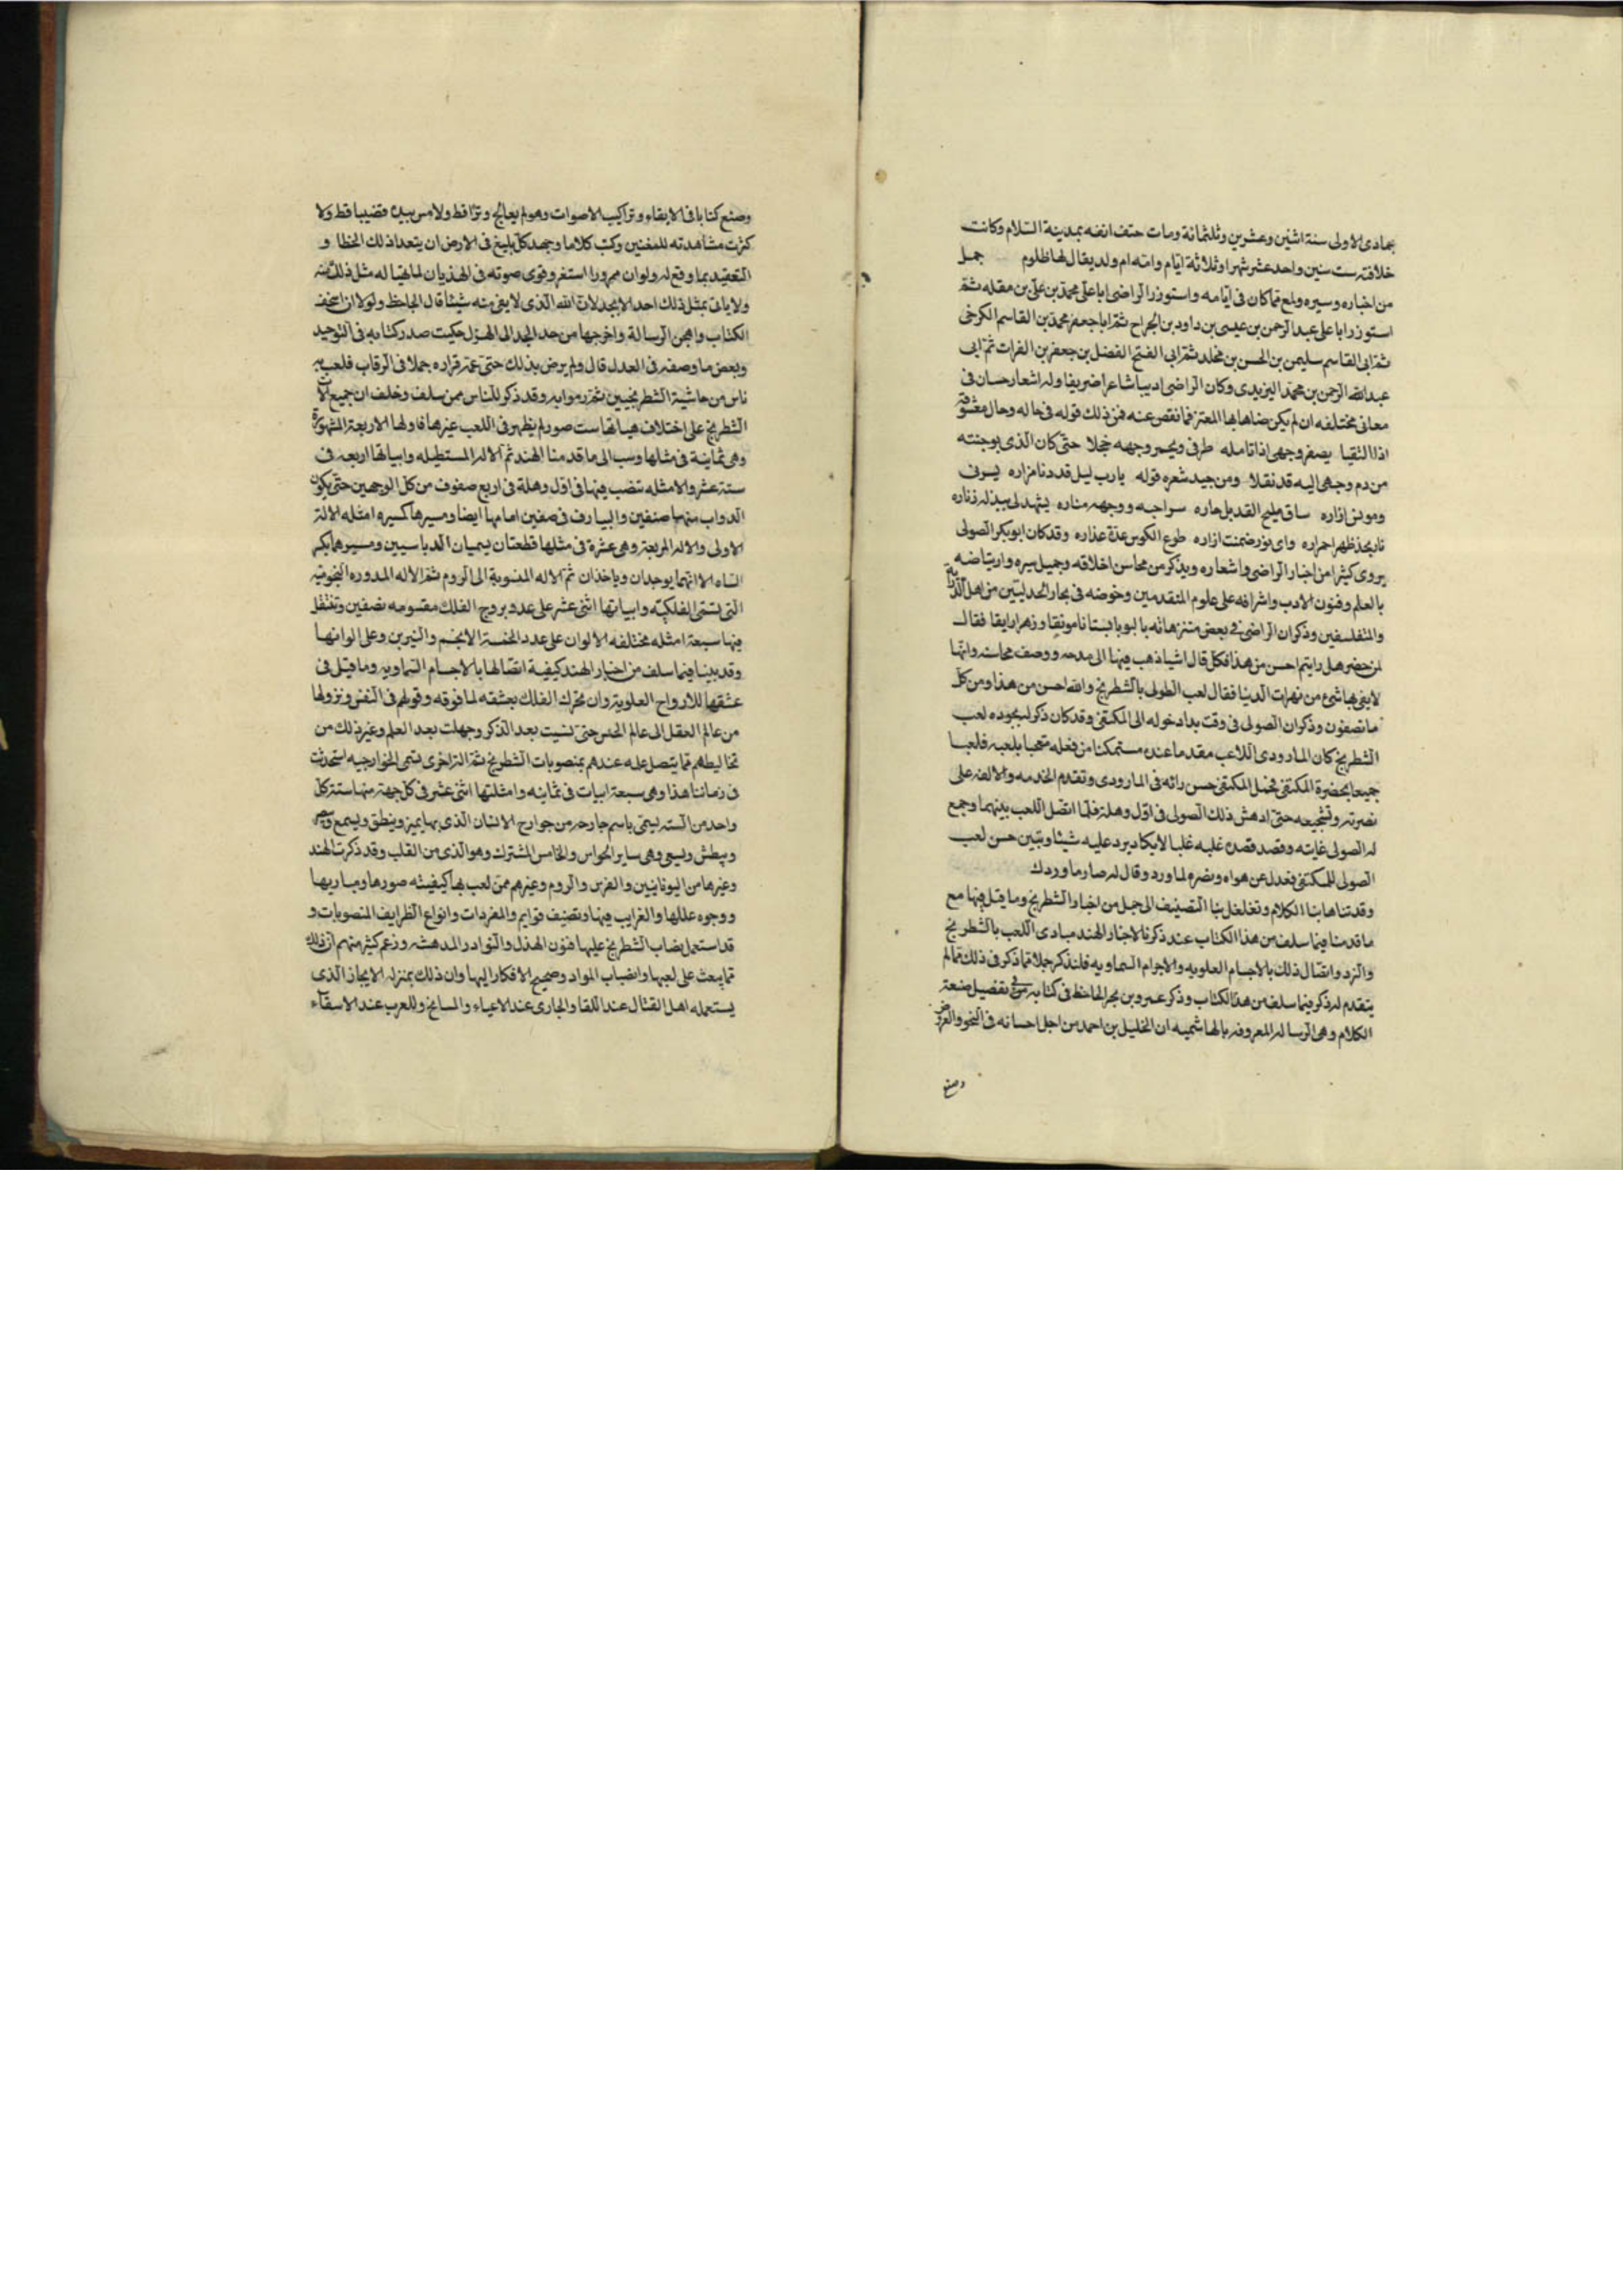 جمادى الاولى سنة اثنين وعشرين وثلثمائة ومات حتف انفه بمدينة السلام وكانت
خلافته ست سنين واحد عشر شهرا وثلاثة ايام وامه ام ولد يقال لها ظلوم جمل
من اخباره وسيره ولمع مما كان فى ايامه واستوزر الراضى ابا على محمد بن على بن مقله ثم
استوزر ابا على عبد الرحمن بن عيسى بن داود بن الجراح ثم ابا جعفر محمد بن القاسم الكرخى
ثم ابى القاسم سليمن بن الحسن بن مخلد ثم ابى الفتح الفضل بن جعفر بن الفرات ثم ابى
عبد الله الرحمن بن محمد اليزيدى وكان الراضى اديبا شاعرا ضريفا وله اشعار حسان فى
معانى مختلفه ان لم يكن ضاها بها المعتز فما نقص عنه فمن ذلك قوله فى حاله وحال معشوقه
اذا التقيا يصفر وجهى اذا تامله طرفى ويحمر وجهه خجلا حتى كان الذى بوجنته
من دم وجهى اليه قد نقلا ومن جيد شعره قوله يا رب ليل قد دنا مزاره يسرف
ومونى ازاره ساق مليح القد بل جاره سراجه ووجهه مناره يشهد لى ببذله زناره
ظهر احمراره واى نور ضمنت ازاره طوع الكوس عدة عذاره وقد كان ابو بكر الصولى
يروى كثيرا من اخبار الراضى واشعاره ويذكر من محاسن اخلاقه وجميل سيره وارتياضه
بالعلم وفنون الادب واشرافه على علوم المتقدمين وخوضه فى بحار الجدليين من اهل الدراية
والمتفلسفين وذكر ان الراضى فى بعض متنزهاته بالبوبا بستانا مونقا وزهرا رايقا فقال
لمن حضر هل رايتم احسن من هذا فكل قال اشيا ذهب فيها الى مدحه ووصف محاسنه وانها
لا يفى بها شئ من زهرات الدنيا فقال لعب الطولى بالشطرنج والله احسن من هذا ومن كل
ما تصفون وذكر ان الصولى فى وقت بدا دخوله الى المكتفى وقد كان ذكر له بجوده لعب
الشطرنج كان الماروودى اللاعب مقدما عنده مستمكنا من فعله متعجبا بلعبه فلعبا
جميعا بحضرة المكتفى فحمل المكتفى حسن رائه فى الماروودى وتقدم الخدمه والالفه على
نصرته وتشجيعه حتى ادهش ذلك الصولى فى اول وهلة فلما اتصل اللعب بينهما وجمع
له الصولى غايته وقصد قصده غلبه غلبا لا يكاد يرد عليه شيئا وتبين حسن لعب
الصولى للمكتفى فعدل عن هواه ونصره لماورد وقال له صار ماوردك
وقد تناها بنا الكلام وتغلغل بنا التصنيف الى جمل من اخبار الشطرنج وما قيل فيها مع
ما قدمنا فيما سلف من هذا الكتاب عند ذكرنا لاخبار الهند مبادى اللعب بالشطرنج
والنرد واتصال ذلك بالاجسام العلويه والاجرام السماويه فلنذكر جملا مما ذكر فى ذلك مما لم
يتقدم له ذكر فيما سلف من هذا الكتاب وذكر عمرو بن بحر الجاحظ فى كتابه فى تفضيل صنعة
الكلام وهى الرساله المعروفه بالهاشميه ان الخليل بن احمد من اجل احسانه فى النحو والعروض
وصنع
وصنع كتابا فى الايقاع وتراكيب الاصوات وهو لم يعالج وترا قط ولا مس بيده قضيبا قط ولا
كثرت مشاهدته للمغنين وكتب كلاما وجهد كل بليغ فى الارض ان يتعمد ذلك الخطا و
التعقيد بما وقع له ولو ان ممرورا استفرغ قوى صوته فى الهذيان لما تهيا له مثل ذلك منه
ولا ياتى بمثل ذلك احد الا بخذلان الله الذى لا يقى منه شيئا قال الجاحظ ولولا ان اسخف
الكتاب واهجن الرسالة واخرجها من حد الجد الى الهزل حكيت صدر كتابه فى التوحيد
وبعض ما وصفه فى العدل قال ولم يرض بذلك حتى عمد قراره جملا فى الرقاب فلعب به
ناس من حاشية الشطرنجيين ثم رموا به وقد ذكر للناس ممن سلف وخلف ان جميع الات
الشطرنج على اختلاف هياتها ست صور لم يظهر فى اللعب غيرها فاولها الاربعة المشهورة
وهى ثمانية فى مثلها ونسب الى ما قدمنا الهند ثم الاله المستطيله وابياتها اربعه فى
ستة عشر والامثله تنصب فيها فى اول وهلة فى اربع صفوف من كل الوجهين حتى يكون
الدواب منهما صنفين والبيارف فى صفين امامها ايضا ومسيرها كمسيره امثله الالة
الاولى والاله المربعة وهى عشرة فى مثلها قطعتان يسميان الدباسيين ومسيرهما كمسير
الشاه الا انهما يوجدان وياخذان ثم الاله المنسوبة الى الروم ثم الاله المدوره النجوميه
التى تسمى الفلكيه وابياتها اثنى عشر على عدد بروج الفلك مقسومه نصفين وتنتقل
فيها سبعة امثله مختلفه الالوان على عدد الخمسة الانجم والنيرين وعلى الوانها
وقد بينا فيما سلف من اخبار الهند كيفية اتصالها بالاجسام السماويه وما قيل فى
عشقها للارواح العلوية وان محرك الفلك بعشقه لما فوقه وقولهم فى النفس ونزولها
من عالم العقل الى عالم الحس حتى نسيت بعد الذكر وجهلت بعد العلم وغير ذلك من
تخاليطهم مما يتصل عله عندهم بمنصوبات الشطرنج ثم اله اخرى تسمى الجوارحيه استحدثت
فى زماننا هذا وهى سبعة ابيات فى ثمانيه وامثلتها اثنى عشر فى كل جهة منها ستة كل
واحد من السته يسمى باسم جارحه من جوارح الانسان الذى بها يميز وينطق ويسمع ويبصر
ويبطش ويسعى وهى ساير الحواس والخامس المشترك وهو الذى من القلب وقد ذكرت الهند
وغيرها من اليونانيين والفرس والروم وغيرهم ممن لعب بها كيفيته صورها ومباريها
ووجوه عللها والغرايب فيها وتصنيف قوايم والمفردات وانواع الظرايف المنصوبات و
قد استعمل بضاب الشطرنج عليها فنون الهذل والنوادر المدهشه وزعم كثير منهم ان ذلك
مما يبعث على لعبها وانضباب المواد وصحيح الافكار اليها وان ذلك بمنزله الايجاز الذى
يستعمله اهل القتال عند اللقا والجارى عند الاعياء والسايح والعرب عند الاسقاء